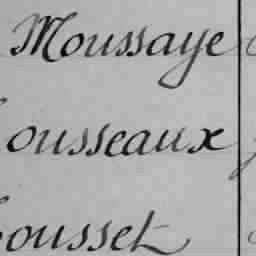 Moussaye
ousseaux
ousset